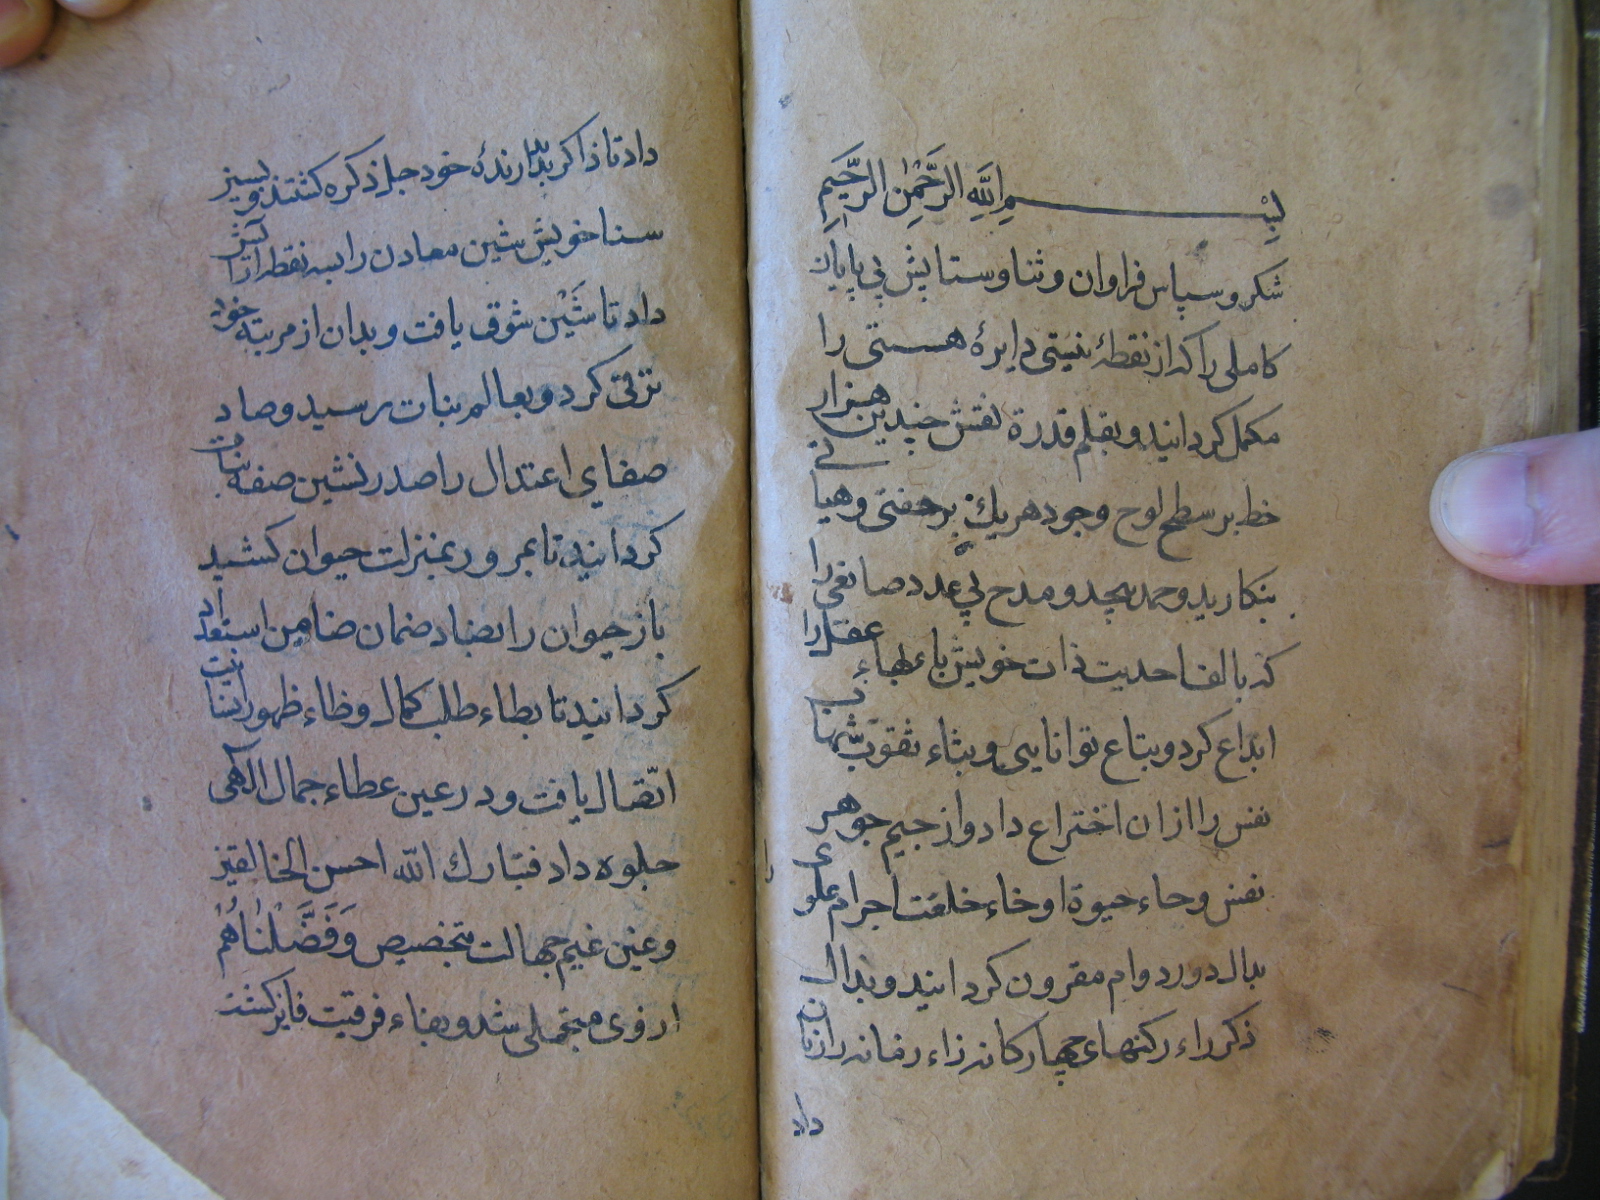 بسم الله الرحمن الرحيم
شكر و سپاس فراوان و ثنا و ستايش بي پايان
كاملى را كه از نقطهٔ نيستى دايرهٔ هستى را
مكمل كردانيد و بقلم قدرة نقش چندين هزار
خط بر سطح لوح وجود هريك بر حقتى و هياتى
بنكاريد و حمد بيحد و مدح بي عدد صانعى را
كه بالف احديت ذات خويش باء بهاء عقل را
ابداع كرد و بتاء توانايى و بثاء ثقوب شهاب
نفس را ازان اختراع داد و از جيم جوهر
نفس و حاء حيوة او خاء خلقت اجرام علوى
بدال دور دوام مقرون كردانيد و بذال
ذكر راء ركنهاى چهاركانه زاء زمانه را زبان
داد
داد تا ذاكر بدارندهٔ خود جل ذكره كشتند و بسين
سنا خويش شين معادن را سه نقطه از آتش
داد تا شين شوق يافت و بدان از مرتبه خود
ترقى كرد و بعالم نبات رسيد و صاد
صفاى اعتدال را صدرنشين صفه نبات
كردانيد تا بمرور بمنزلت حيوان كشيد
باز حيوان را بضاد ضمان ضامن استعداد
كردانيد تا بطاء طلب كمال و ظاء ظهور انسانيت
اتصال يافت و در عين عطاء جمال الهى
جلوه داد فتبارك الله احسن الخالقين
و عين غيم جهالت بتخصيص وَفَضَّلْنَاهُمْ
از وى متجلى شد و بفاء فرقيت فايز كشت